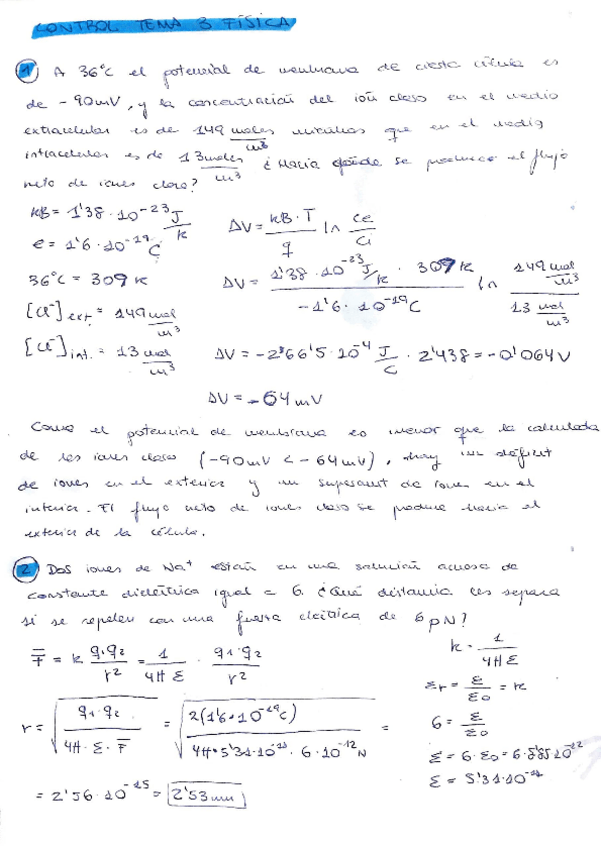 CONTROL TEMA 3 FÍSICA
1) A 36°C el potencial de membrana de cierta célula es
de -90mV, y la concentración del ión cloro en el medio
extracelular es de 149 moles/m³ mientras que en el medio
intracelular es de 13 moles/m³ ¿Hacia dónde se produce el flujo
neto de iones cloro?
kB = 1'38·10^-23 J/k
e = 1'6·10^-19 C
36°C = 309 k
[Cl^-]ext. = 149 mol/m³
[Cl^-]int. = 13 mol/m³
ΔV = kB·T/q ln ce/ci
ΔV = 1'38·10^-23 J/k · 309 k / -1'6·10^-19 C ln 149 mol/m³ / 13 mol/m³
ΔV = -2'6615·10^-4 J/C · 2'438 = -0'064 V
ΔV = -64 mV
Como el potencial de membrana es menor que la calculada
de los iones cloro (-90mV < -64mV), hay un déficit
de iones en el exterior y un superavit de iones en el
interior. El flujo neto de iones cloro se produce hacia el
exterior de la célula.
2) Dos iones de Na+ están en una solución acuosa de
constante dieléctrica igual a 6. ¿Qué distancia les separa
si se repelen con una fuerza eléctrica de 6 pN?
F = k q1·q2/r² = 1/4π ε · q1·q2/r²
k = 1/4π ε
εr = ε/ε0 = k
6 = ε/ε0
r = √(q1·q2 / 4π·ε·F) = √(2(1'6·10^-19 C) / 4π·5'31·10^-11·6·10^-12 N) =
ε = 6·ε0 = 6·8'85·10^-12
ε = 5'31·10^-11
= 2'56·10^-15 = 2'53 mm